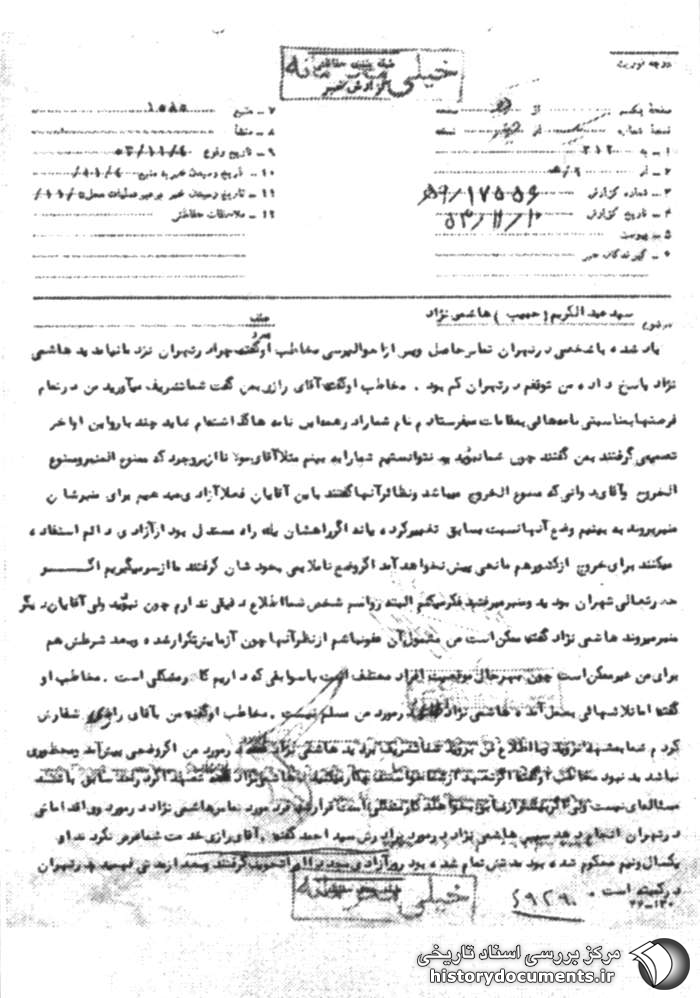 خیلی محرمانه
گزارش خبر
درجه فوریت
صفحه یکم از صفحه
نسخه شماره از نسخه
۱ ـ به ۳۱۲
۲ ـ از ۹ه‍
۳ ـ شماره گزارش ۱۷۵۵۶/۹ه‍
۴ ـ تاریخ گزارش ۵۳/۱۱/۱۰
۵ ـ پیوست
۶ ـ گیرندگان خبر
۷ ـ منبع ۱۰۸۵
۸ ـ منشأ
۹ ـ تاریخ وقوع ۵۳/۱۱/۶
۱۰ ـ تاریخ رسیدن خبر به منبع /۱۱/۶
۱۱ ـ تاریخ رسیدن خبر به رهبر عملیات محل /۱۱/
۱۲ ـ ملاحظات حفاظتی
موضوع سید عبدالکریم (حبیب) هاشمی نژاد
یاد شده با شخصی در تهران تماس حاصل و پس از احوالپرسی مخاطب او گفت چرا در تهران نزد ما نیامدید هاشمی
نژاد پاسخ داد من توقفم در تهران کم بود . مخاطب او گفت آقای رازی بمن گفت شما تشریف میآورید من در تمام
فرصتها بمناسبتی نامه هائی بمقامات میفرستادم نام شما را در همه این نامه ها گذاشته ام شاید چند بار و این اواخر
تصمیمی گرفتند بمن گفتند چون شما نبودید نتوانستیم شما را به بینم مثلا آقای مولانا از بروجرد که ممنوع المنبر و ممنوع
الخروج و آقای دوانی که ممنوع الخروج میباشد و نظائر آنها گفتند باین آقایان فعلا آزادی میدهیم برای منبرشان
منبر بروند به بینیم وضع آنها نسبت بسابق تغییر کرده یا نه اگر راهشان یک راه معتدل بود از آزادی دائم استفاده
میکنند برای خروج از کشور هم مانعی پیش نخواهد آمد اگر وضع ناملایمی بخود شان گرفتند ما از سر میگیریم اگر
حضرتعالی تهران بودید و منبر میرفتید فکر میکنم البته در قسم شخص شما اطلاع دقیقی ندارم چون نبودید ولی آقایان دیگر
منبر میروند هاشمی نژاد گفت ممکن است من مشمول آن عفو نباشم از نظر آنها چون آزمایش تکرار شده و بعد شرطش هم
برای من غیر ممکن است چون بهر حال موقعیت افراد مختلف است با سوابقی که داریم کار مشکلی است . مخاطب او
گفت اما تلاشهائی بعمل آمده هاشمی نژاد گفت در مورد من مسلم نیست . مخاطب او گفت من بآقای رازی سفارش
کردم شما بمشهد نروید و با اطلاع من بروید شما تشریف بردید هاشمی نژاد گفت در مورد من اگر وضعی پیش آمد و محظوری
نباشد بد نبود مخاطب او گفت اگر
مسئله ای نیست ولی اگر بیشتر از سابق بخواهند کار مشکلی است قرار شد فرد مورد تماس هاشمی نژاد در مورد وی اقداماتی
در تهران انجام دهد سپس هاشمی نژاد در مورد برادرش سید احمد گفت . آقای رازی خدمت شما عرض نکردند او
یکسال و نیم محکوم شده بود مدتش تمام شده بود روز آزادی
در کمیته است .
۲۶ـ۱۳۰
خیلی محرمانه
مرکز بررسی اسناد تاریخی
historydocuments.ir